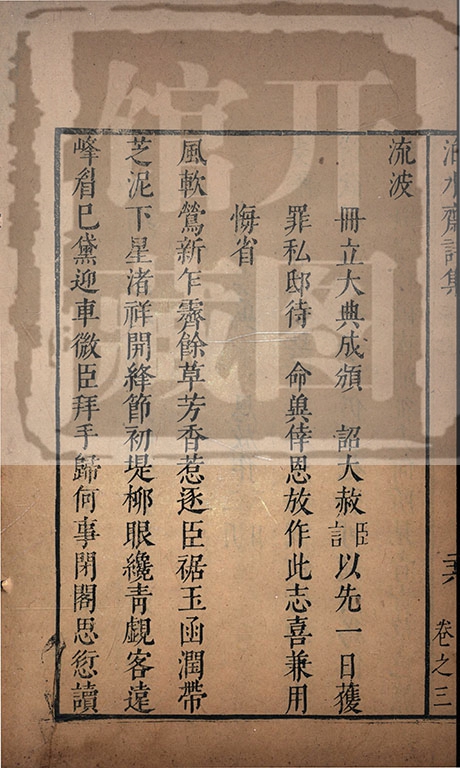 泊水齋詩集
卷之三
流波
冊立大典成頒 詔大赦臣言以先一日獲
罪私邸待 命與倖恩放作此志喜兼用
悔省
風軟鶯新乍霽餘草芳香惹逐臣裾玉函潤帶
芝泥下星渚祥開絳節初堤柳眼纔青覷客遠
峰眉巳黛迎車微臣拜手歸何事閉閣思愆讀
開
圖
館
藏